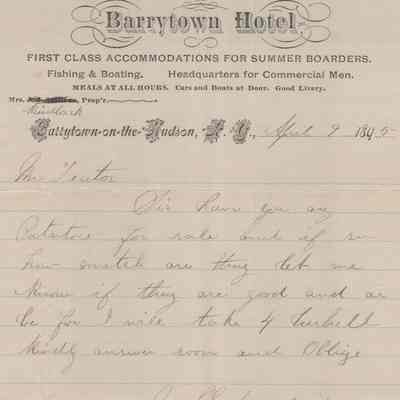 Barrytown Hotel,
FIRST CLASS ACCOMMODATIONS FOR SUMMER BOARDERS.
Fishing & Boating. Headquarters for Commercial Men.
MEALS AT ALL HOURS. Cars and Boats at Door. Good Livery.
Mrs. Prop'r.
Barrytown-on-the-Hudson, N. Y., April 9 1895
Mr Teator
Sir have you any
Patatoes for sale and if so
how mutch are they let me
know if they are good and
be for I will take 4 bushell
kindly answer soon and Oblige